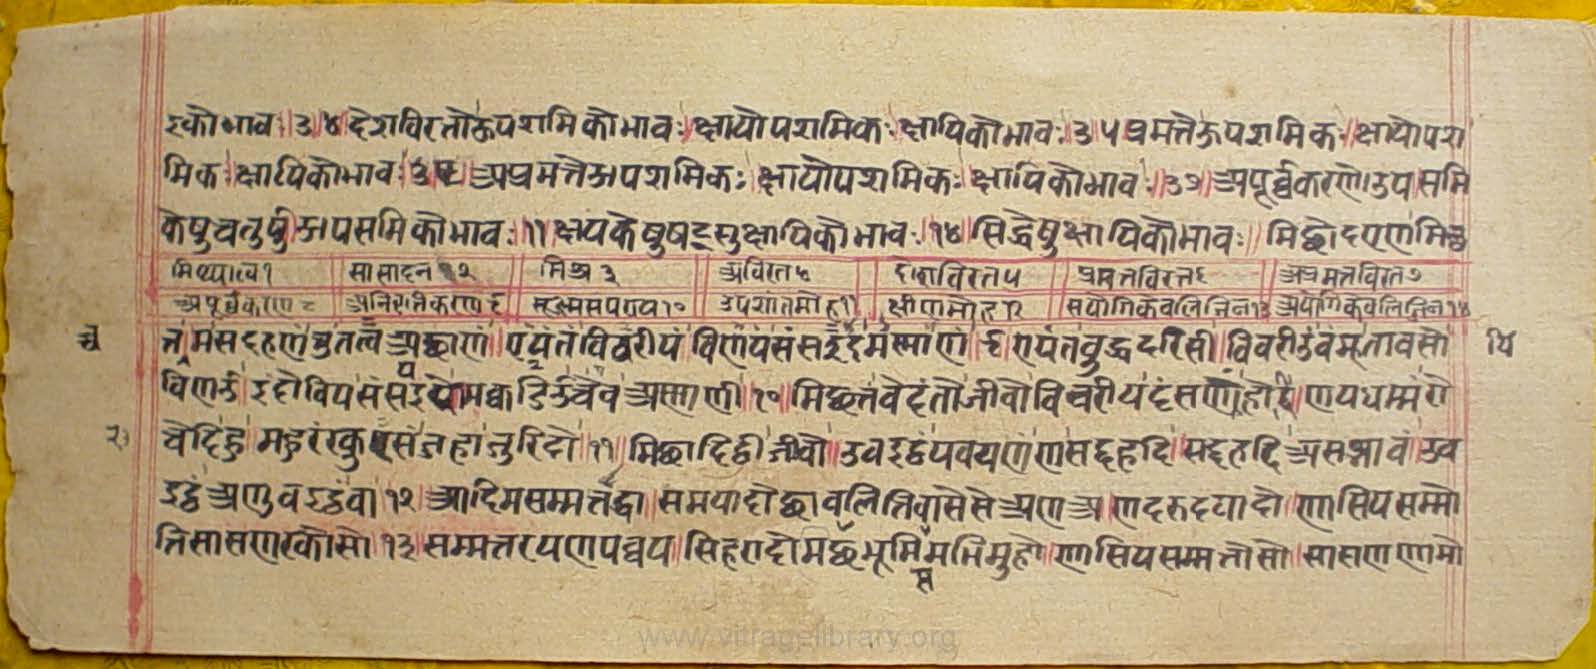 इको भाव ।३।४ देशविरतौऊपशमिको भावः क्षायोपशमिकः क्षायिको भावः ।३।५ प्रमत्तेऊपशमिकः क्षायोपश
मिक क्षायिको भावः ।३।६ अप्रमत्तेऊपशमिकः क्षायोपशमिकः क्षायिको भावः ।३।७ अपूर्वकरणे उपसमि
केषु चतुर्षु ऊपसमिको भावः ।११। क्षपकेषु षट्सु क्षायिको भावः ।१४। सिद्धेषु क्षायिको भावः ॥ मिछोदएणमिछ
मिथ्यात्व१ सासादन २ मिश्र ३ अविरत ५ देशविरत ५ प्रमत्तविरत६ अप्रमत्तविरत७
अपूर्वकरण८ अनिवृत्तिकरण९ उपशांतमोह११ क्षीणमोह१२ सयोगिकेवलिजिन१३ अयोगिकेवलिजिन१४
त्तंमसद्दहणंतु तत्व अछाणं एयंतं विवरीयं विणयं संसइदमस्माणं ९ एयंत बुद्ध दरिसी विवरीउ बंम तावसो
विणउ इंदो विय संसइयो मक्कडिउ चेव अस्माणी १० मिछत्तं वेदंतो जीवो विवरीय दंसणो होदि णय धम्मं रो
चेदि हु महुरं खु रसं जहा जुरिदो ११ मिछादिट्ठी जीवो उवइट्ठं पवयणं ण सद्दहदि सद्दहदि असब्भावं उव
इट्ठं अणुवइट्ठं वा १२ आदिमसम्मत्तद्धा समयादो छावलित्ति वा सेसे अणअण्णदरुदयादो णासियसम्मो
त्ति सासणरकोसो १३ सम्मत्तरयणपव्वय सिहरादो मिछभूमिसमभिमुहो णासियसम्मत्तो सो सासणणामो
www.vitragelibrary.org